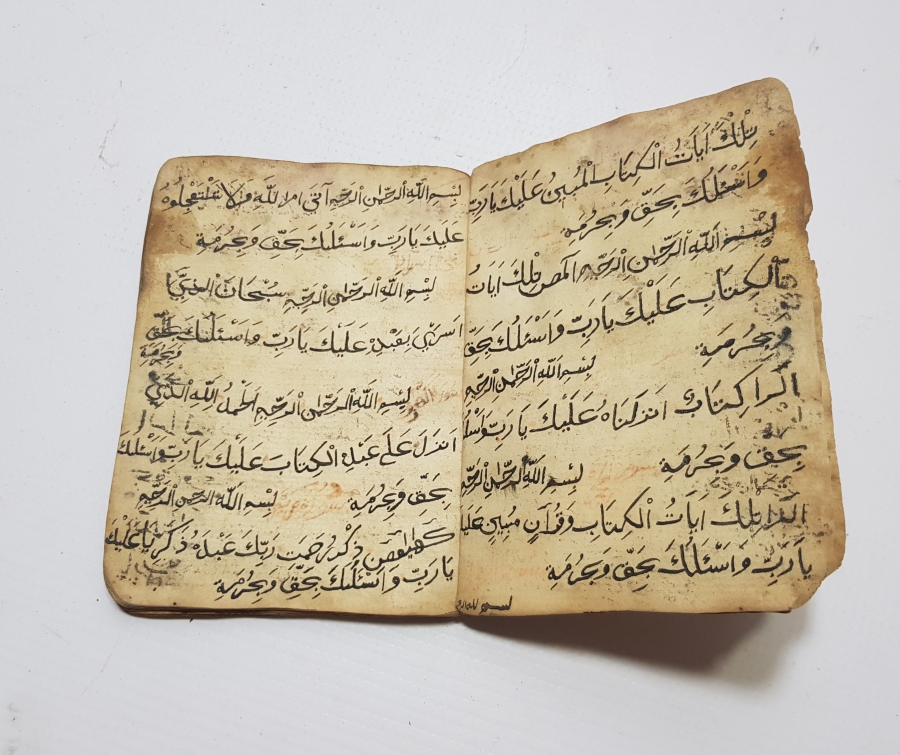 تِلْكَ اٰيَاتُ الْكِتَابِ الْمُبِيْنُ عَلَيْكَ يَارَبِّ
وَاَسْئَلُكَ بِحَقِّ وَبِحُرْمَةِ
بِسْمِ اللّٰهِ الرَّحْمٰنِ الرَّحِيْمِ المص تِلْكَ اٰيَاتُ
الْكِتَابِ عَلَيْكَ يَارَبِّ وَاَسْئَلُكَ بِحَقِّ
وَبِحُرْمَةِ
بِسْمِ اللّٰهِ الرَّحْمٰنِ الرَّحِيْمِ
الٓرا كِتَابٌ اَنْزَلْنَاهُ عَلَيْكَ يَارَبِّ
بِحَقِّ وَبِحُرْمَةِ
بِسْمِ اللّٰهِ الرَّحْمٰنِ الرَّحِيْمِ
الٓرا تِلْكَ اٰيَاتُ الْكِتَابِ وَقُرْاٰنٍ مُبِيْنٍ
يَارَبِّ وَاَسْئَلُكَ بِحَقِّ وَبِحُرْمَةِ
بِسْمِ اللّٰهِ الرَّحْمٰنِ الرَّحِيْمِ اَتٰى اَمْرُ اللّٰهِ فَلَا تَسْتَعْجِلُوْهُ
عَلَيْكَ يَارَبِّ وَاَسْئَلُكَ بِحَقِّ وَبِحُرْمَةِ
بِسْمِ اللّٰهِ الرَّحْمٰنِ الرَّحِيْمِ سُبْحَانَ الَّذِيْ
اَسْرٰى بِعَبْدِهِ عَلَيْكَ يَارَبِّ وَاَسْئَلُكَ بِحَقِّ
وَبِحُرْمَةِ
بِسْمِ اللّٰهِ الرَّحْمٰنِ الرَّحِيْمِ اَلْحَمْدُ لِلّٰهِ الَّذِيْ
اَنْزَلَ عَلٰى عَبْدِهِ الْكِتَابَ عَلَيْكَ يَارَبِّ وَاَسْئَلُكَ
بِحَقِّ وَبِحُرْمَةِ
بِسْمِ اللّٰهِ الرَّحْمٰنِ الرَّحِيْمِ
كهيعص ذِكْرُ رَحْمَتِ رَبِّكَ عَبْدَهُ زَكَرِيَّا عَلَيْكَ
يَارَبِّ وَاَسْئَلُكَ بِحَقِّ وَبِحُرْمَةِ